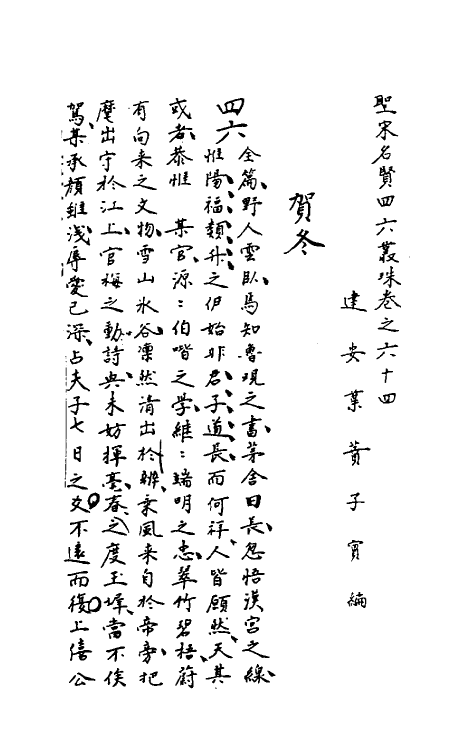 聖宋名賢四六叢珠卷之六十四
建安葉蕡子實編
賀冬
四六
全篇野人雲臥焉知魯觀之書茅舍日長忽悟漢宮之線
惟陽福類升之伊始非君子道長而何祥人皆顧然天其
或者恭惟 某官源〻伯喈之学維〻端明之忠萃竹碧梧蔚
有向来之文物雪山氷谷凛然清出於辨章風来自於帝旁把
麾出守於江上官梅之動詩興未妨揮毫春之度玉墀當不俟
駕某承顔雖浅辱愛已深占夫子七日之爻不遠而復上僖公